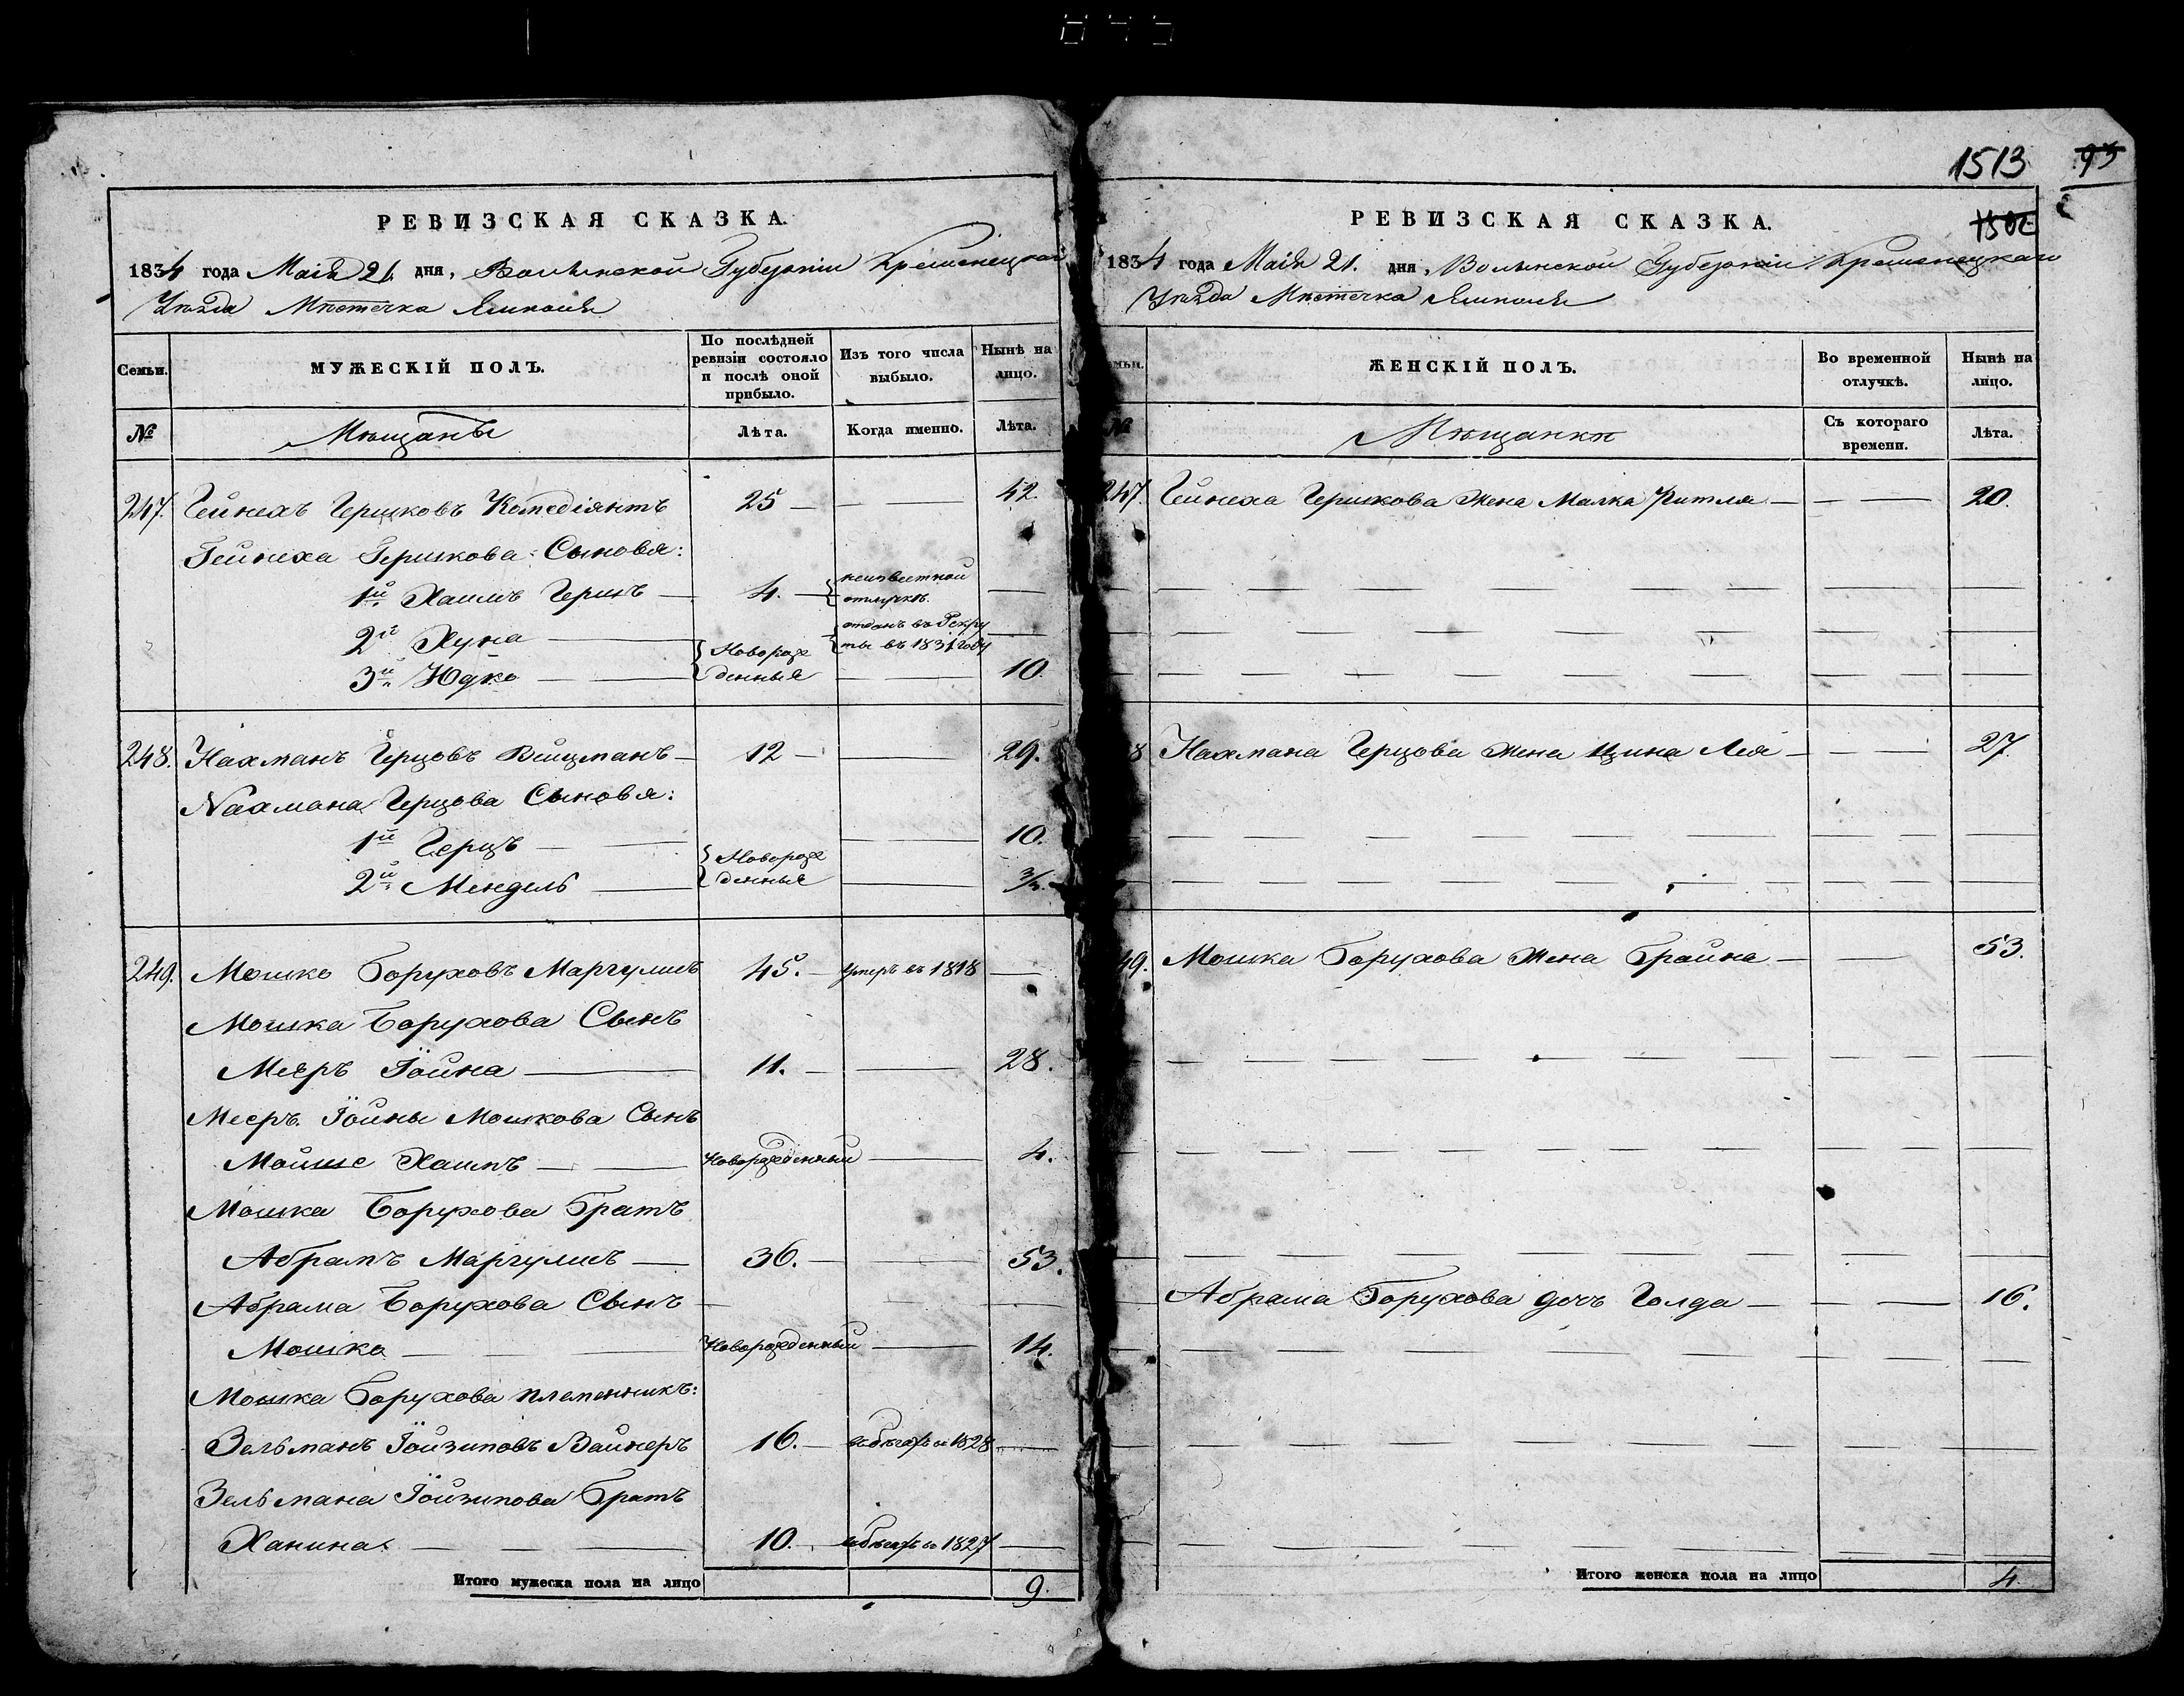 1513 93
1502
РЕВИЗСКАЯ СКАЗКА.
1834 года Маія 21. дня, Волынской Губерніи Кременецкаго
Уѣзда Мѣстечка Ямполя
Семьи. МУЖЕСКІЙ ПОЛЪ. По послѣдней ревизіи состояло и послѣ оной прибыло. Изъ того числа выбыло. Нынѣ на лицо.
№ Мѣщанѣ Лѣта. Когда именно. Лѣта.
247. Гейнехъ Гершковъ Комедіянтъ 25 — — 42.
Гейнеха Гершкова Сыновя:
1й Хаимъ Гершъ — 4. — неизвестной отлучкѣ. —
2й Хуна — отданъ въ Рекруты въ 1831 году —
3й Юдко — Новорожденныя — 10.
248. Нахманъ Герцовъ Вейцманъ — 12 — — 29.
Nахмана Герцова Сыновя:
1й Герцъ — — 10.
2й Мендель — Новорожденныя —
249. Мошко Боруховъ Маргулисъ 45. — Умеръ въ 1818 —
Мошка Борухова Сынъ
Меѣръ Іойна — 11. — — 28.
Мееръ Іойны Мошкова Сынъ
Мойше Хаимъ — Новорожденный — 4.
Мошка Борухова Братъ
Абрамъ Маргулисъ — 36. — — 53.
Абрама Борухова Сынъ —
Мошка — Новорожденный — 14.
Мошка Борухова племенникъ:
Зельманъ Іойзиповъ Вайнеръ 16. — въ бѣгахъ съ 1828 —
Зельмана Іойзипова Братъ
Ханина — 10. — въ бѣгахъ съ 1827 —
Итого мужеска пола на лицо 9.
РЕВИЗСКАЯ СКАЗКА.
1834 года Маія 21. дня, Волынской Губерніи Кременецкаго
Уѣзда Мѣстечка Ямполя
ЖЕНСКІЙ ПОЛЪ. Во временной отлучкѣ. Нынѣ на лицо.
№ Мѣщанки Съ котораго времени. Лѣта.
247. Гейнеха Гершкова Жена Малка Ритля — — 20.
8 Нахмана Герцова Жена Щина Лея — — 27
49. Мошка Борухова Жена Брайна — — 53.
Абрама Борухова дочъ Голда — — 16.
Итого женска пола на лицо 4.